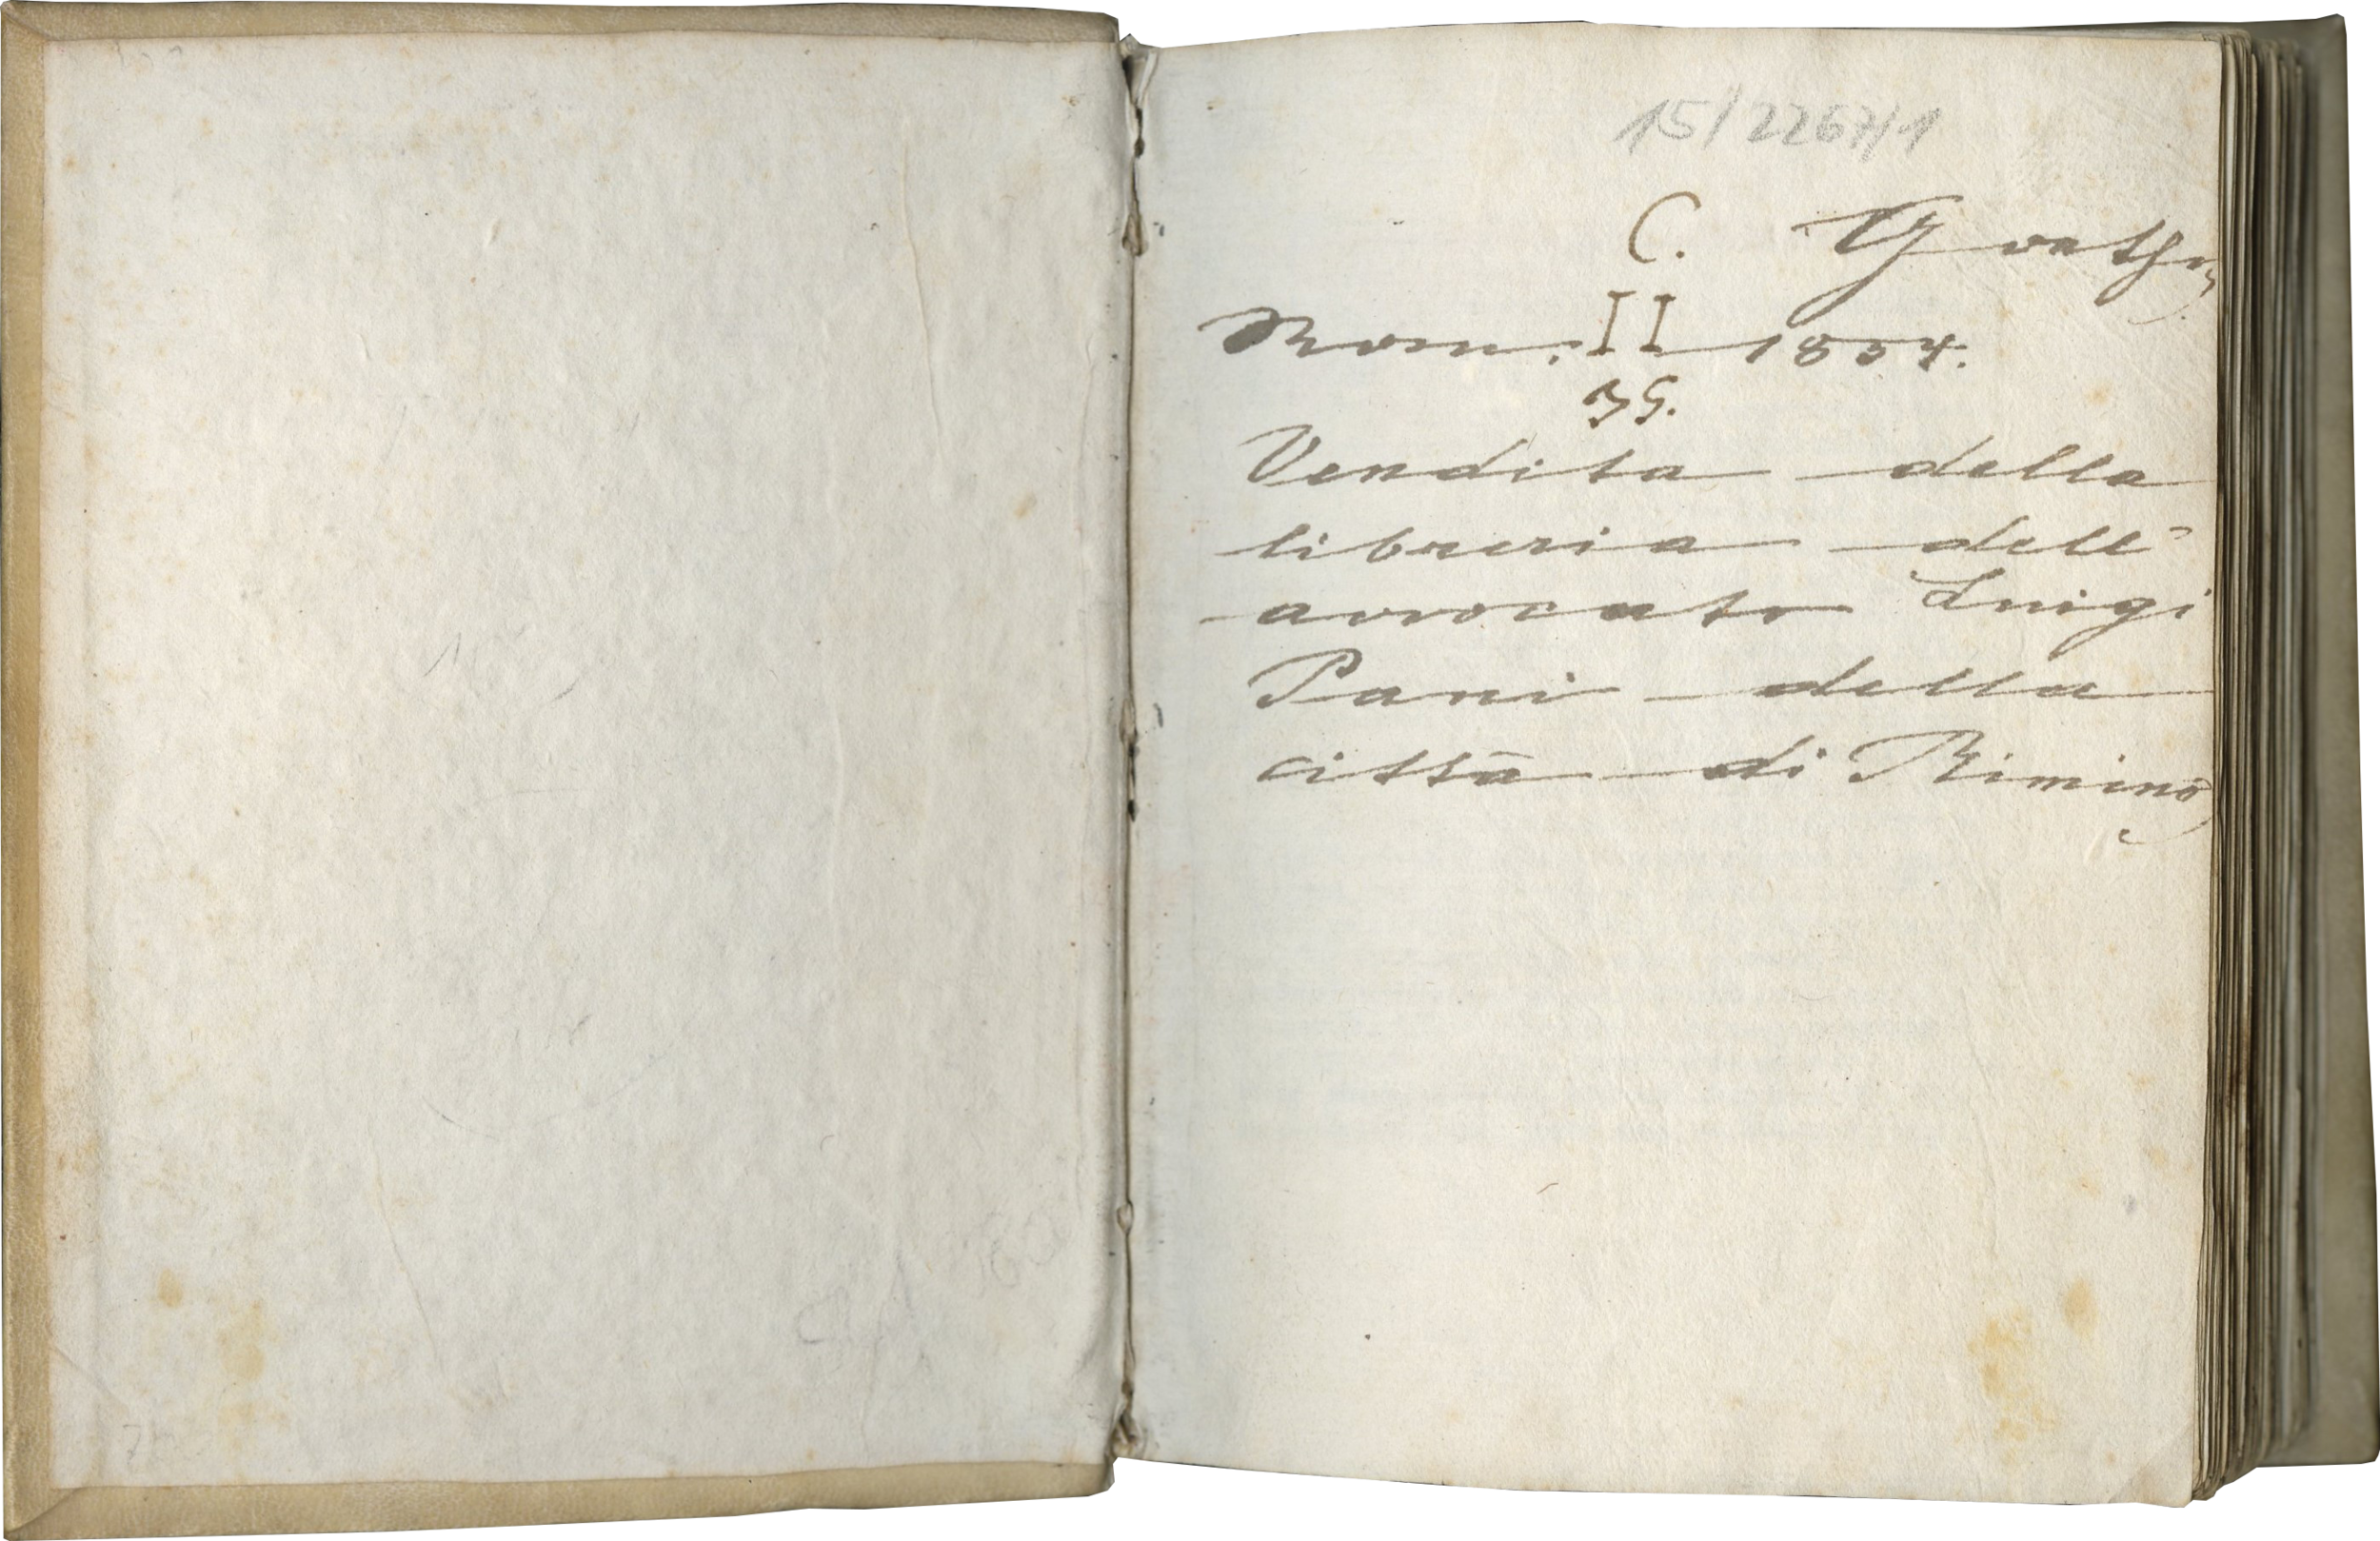 15/2267/1
C. Goethe
Rom. II 1854.
35.
Vendita della
libreria dell'
avvocato Luigi
Pani della
città di Rimino